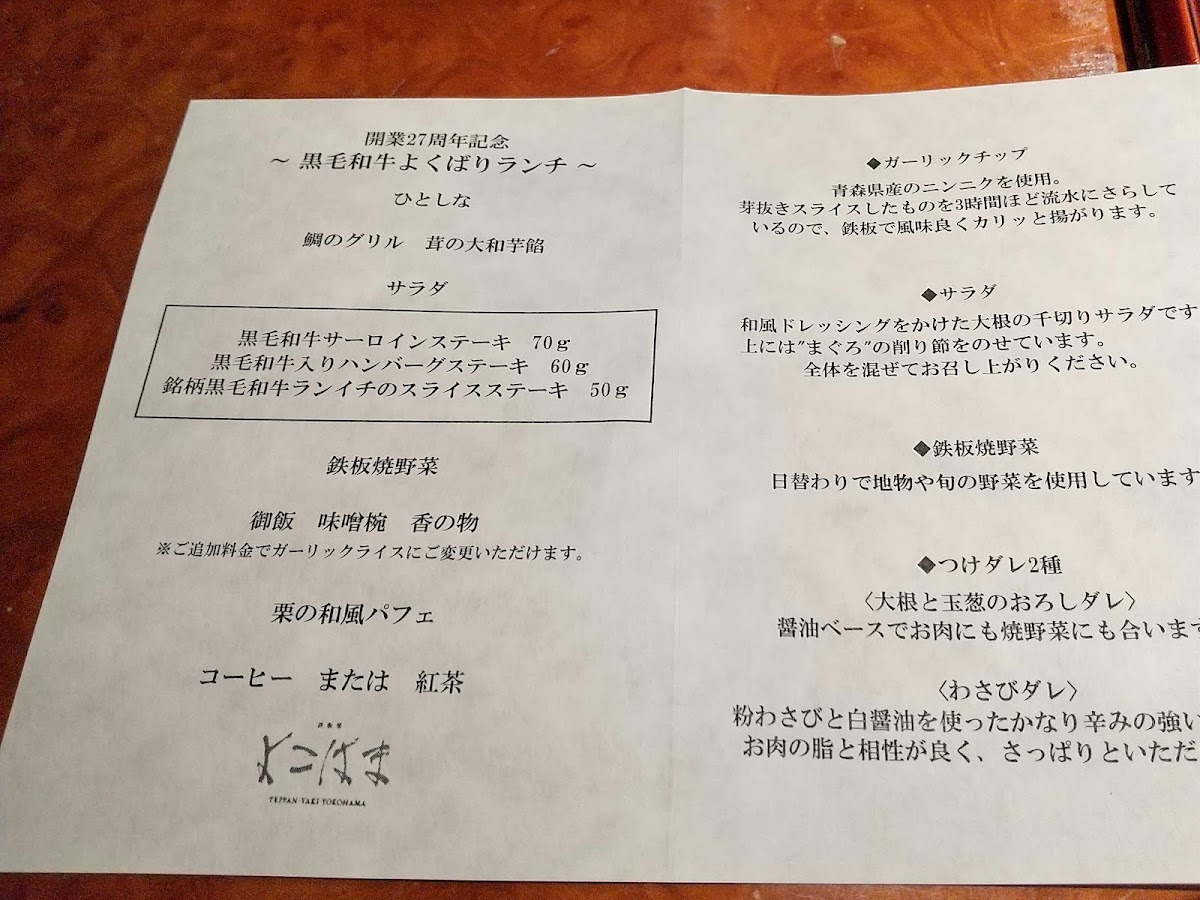 開業27周年記念
～ 黒毛和牛よくばりランチ ～
ひとしな
鯛のグリル　茸の大和芋餡
サラダ
黒毛和牛サーロインステーキ　70ｇ
黒毛和牛入りハンバーグステーキ　60ｇ
銘柄黒毛和牛ランイチのスライスステーキ　50ｇ
鉄板焼野菜
御飯　味噌椀　香の物
※ご追加料金でガーリックライスにご変更いただけます。
栗の和風パフェ
コーヒー　または　紅茶
鉄板焼
よこはま
TEPPAN-YAKI YOKOHAMA
◆ガーリックチップ
青森県産のニンニクを使用。
芽抜きスライスしたものを3時間ほど流水にさらして
いるので、鉄板で風味良くカリッと揚がります。
◆サラダ
和風ドレッシングをかけた大根の千切りサラダです
上には"まぐろ"の削り節をのせています。
全体を混ぜてお召し上がりください。
◆鉄板焼野菜
日替わりで地物や旬の野菜を使用しています
◆つけダレ2種
〈大根と玉葱のおろしダレ〉
醤油ベースでお肉にも焼野菜にも合います
〈わさびダレ〉
粉わさびと白醤油を使ったかなり辛みの強い
お肉の脂と相性が良く、さっぱりといただ